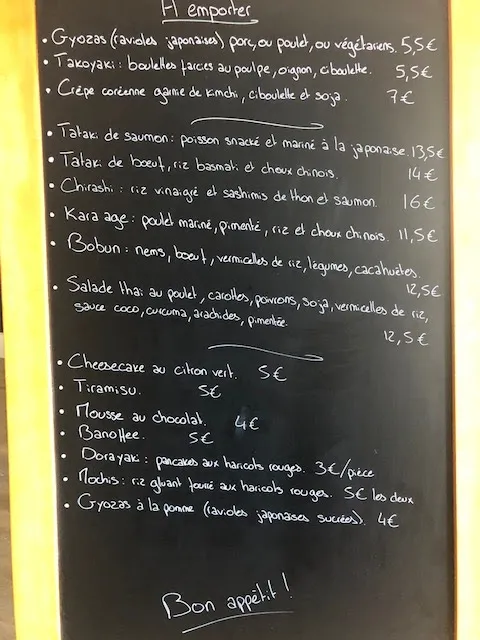 A emporter
• Gyozas (ravioles japonaises) porc, ou poulet, ou végétariens. 5,5€
• Takoyaki : boulettes farcies au poulpe, oignon, ciboulette. 5,5€
• Crêpe coréenne garnie de kimchi, ciboulette et soja. 7€
• Tataki de saumon : poisson snacké et mariné à la japonaise. 13,5€
• Tataki de boeuf, riz basmati et choux chinois. 14€
• Chirashi : riz vinaigré et sashimis de thon et saumon. 16€
• Kara age : poulet mariné, pimenté, riz et choux chinois. 11,5€
• Bobun : nems, boeuf, vermicelles de riz, légumes, cacahuètes.
12,5€
• Salade thaï au poulet, carottes, poivrons, soja, vermicelles de riz,
sauce coco, curcuma, arachides, pimentée.
12,5€
• Cheesecake au citron vert. 5€
• Tiramisu. 5€
• Mousse au chocolat. 4€
• Banoffee. 5€
• Dorayaki : pancakes aux haricots rouges. 3€/pièce
• Mochis : riz gluant fourré aux haricots rouges. 5€ les deux
• Gyozas à la pomme (ravioles japonaises sucrées). 4€
Bon appétit !